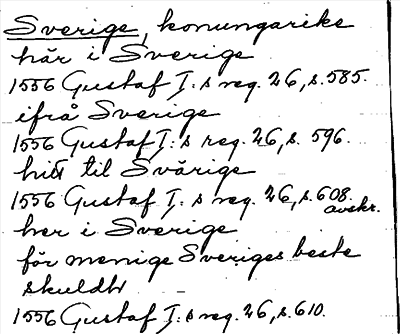 Sverige, konungarike
här i Sverige
1556 Gustaf I:s reg. 26, s. 585.
ifrå Sverige
1556 Gustaf I:s reg. 26, s. 596.
hitt til Svärige
1556 Gustaf I:s reg. 26, s. 608.
avskr.
her i Sverige
för menige Sveriges beste
skuldh
1556 Gustaf I:s reg. 26, s. 610.